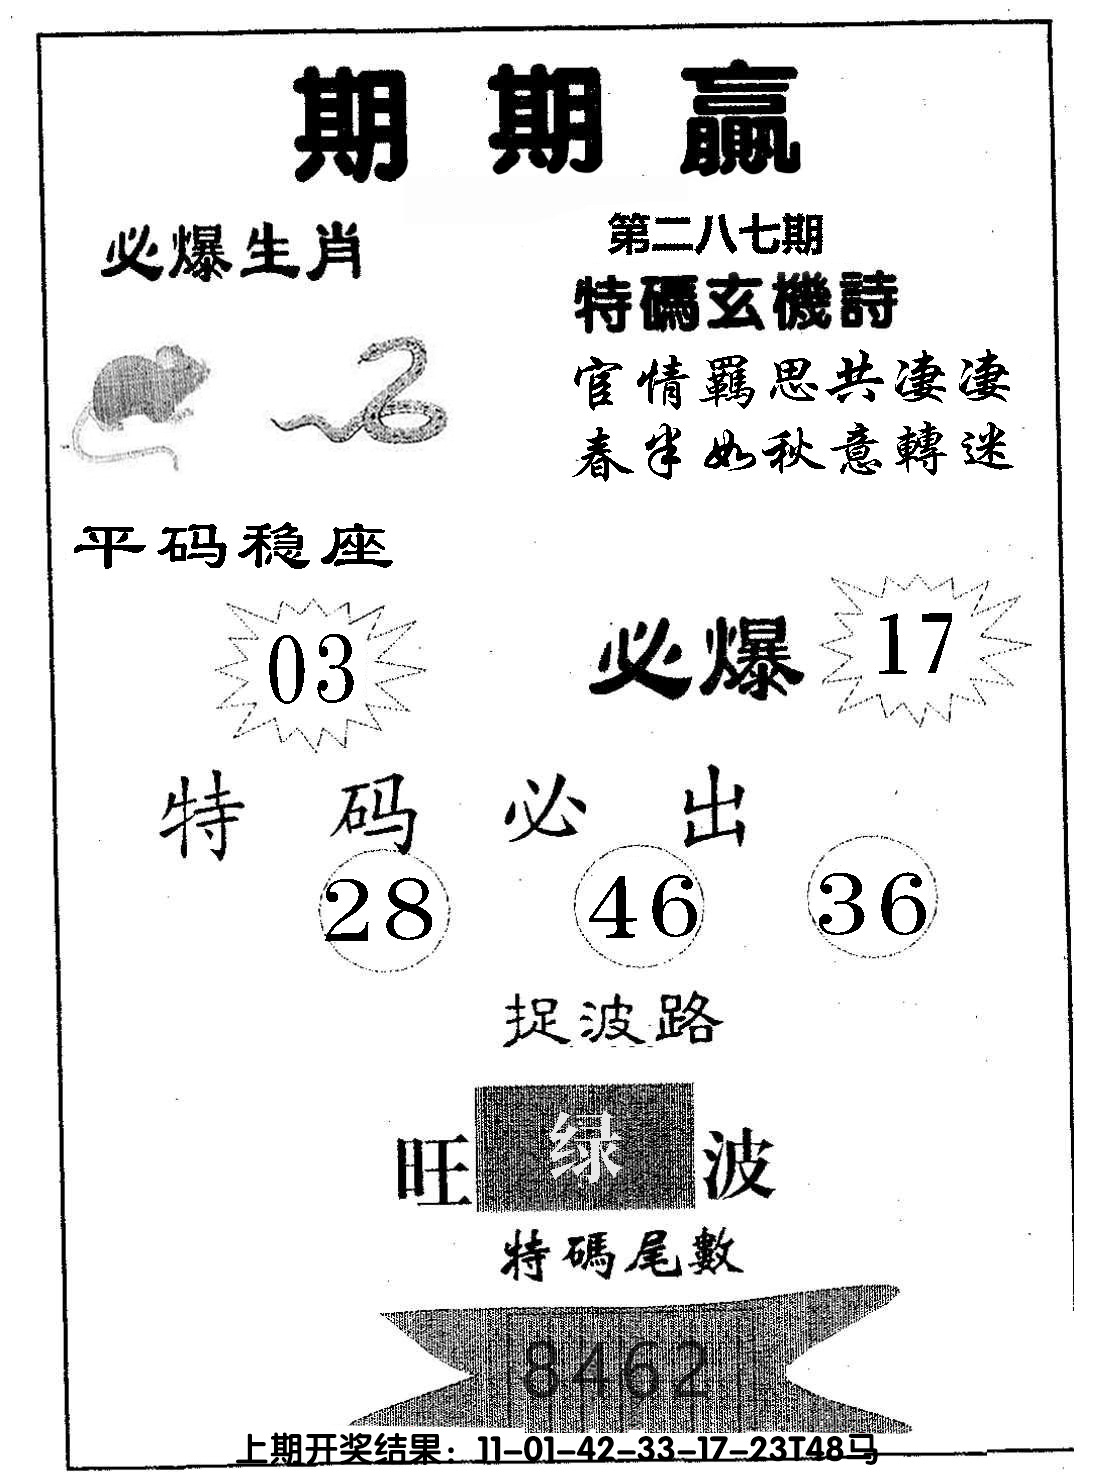 期期贏
必爆生肖
第二八七期
特碼玄機詩
官情羈思共淒淒
春半如秋意轉迷
平码稳座
03
必爆 17
特码必出
28 46 36
捉波路
旺 绿 波
特碼尾數
8462
上期开奖结果：11-01-42-33-17-23T48马